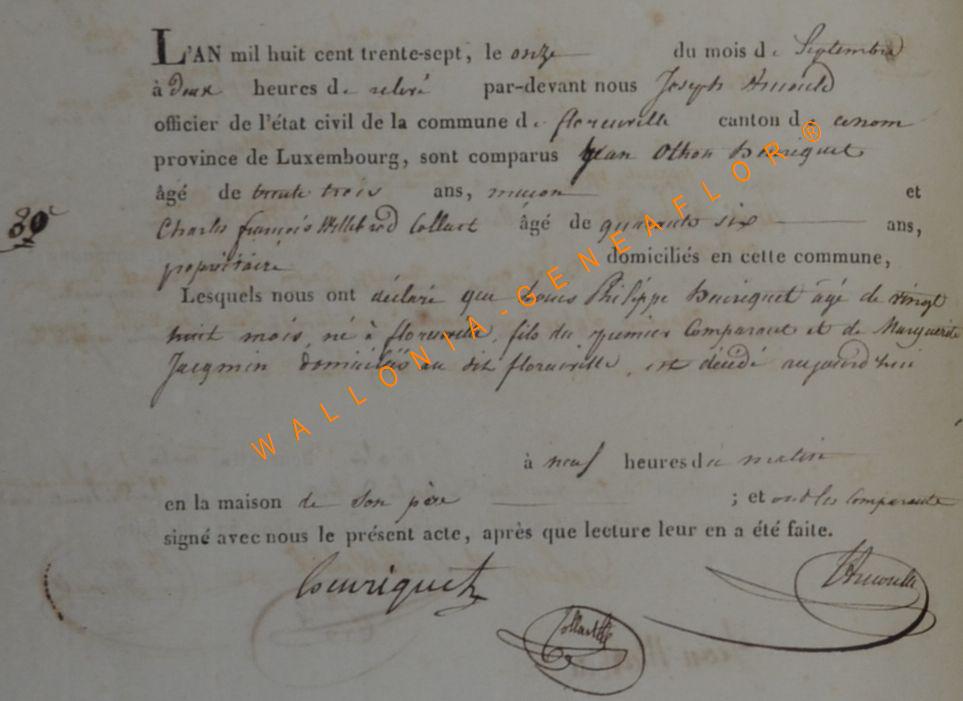 L'AN mil huit cent trente-sept, le onze du mois de Septembre
à deux heures de relevé par-devant nous Joseph Arnould
officier de l'état civil de la commune de florenville canton de ce nom
province de Luxembourg, sont comparus Jean Othon Henriquet
âgé de trente trois ans, maçon et
80e
Charles françois Willibrod Collart âgé de quarante six ans,
propriétaire domiciliés en cette commune,
Lesquels nous ont déclaré que Louis Philippe Henriquet âgé de vingt
huit mois, né à florenville, fils du premier Comparant et de Marguerite
Jacqmin domiciliés au dit florenville, est décédé aujourd'hui
à neuf heures du matin
en la maison de son père ; et ont les Comparants
signé avec nous le présent acte, après que lecture leur en a été faite.
henriquet
Collart
Arnould
WALLONIA-GENEAFLOR®